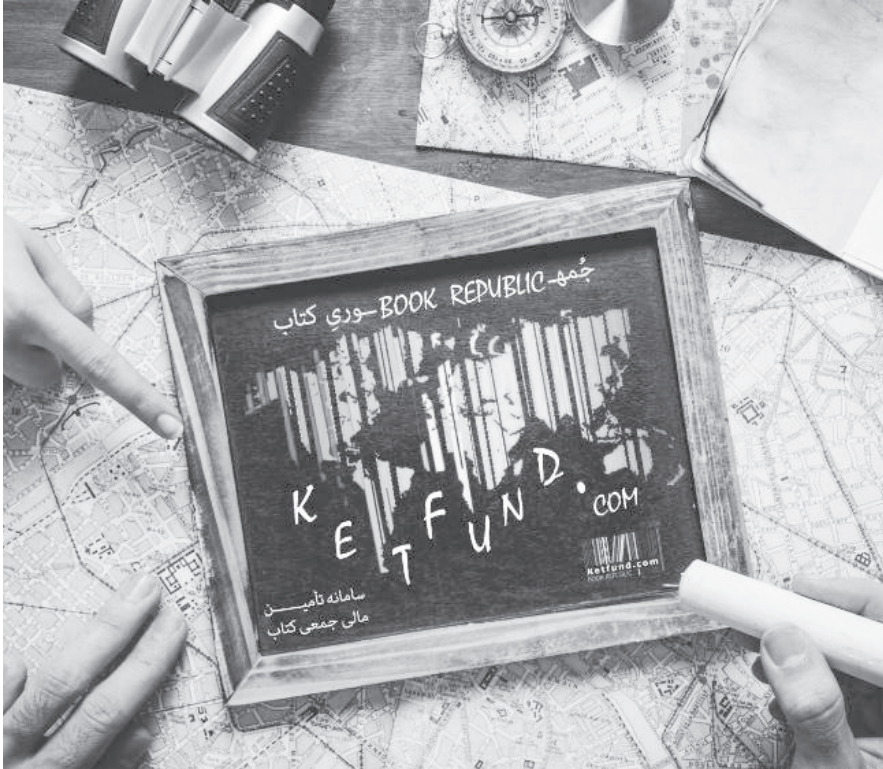 جُمهـBOOK REPUBLICـوريِ کتاب
KETFUND.COM
Ketfund.com
BOOK REPUBLIC
سامانه تأمیـــن
مالی جمعی کتاب